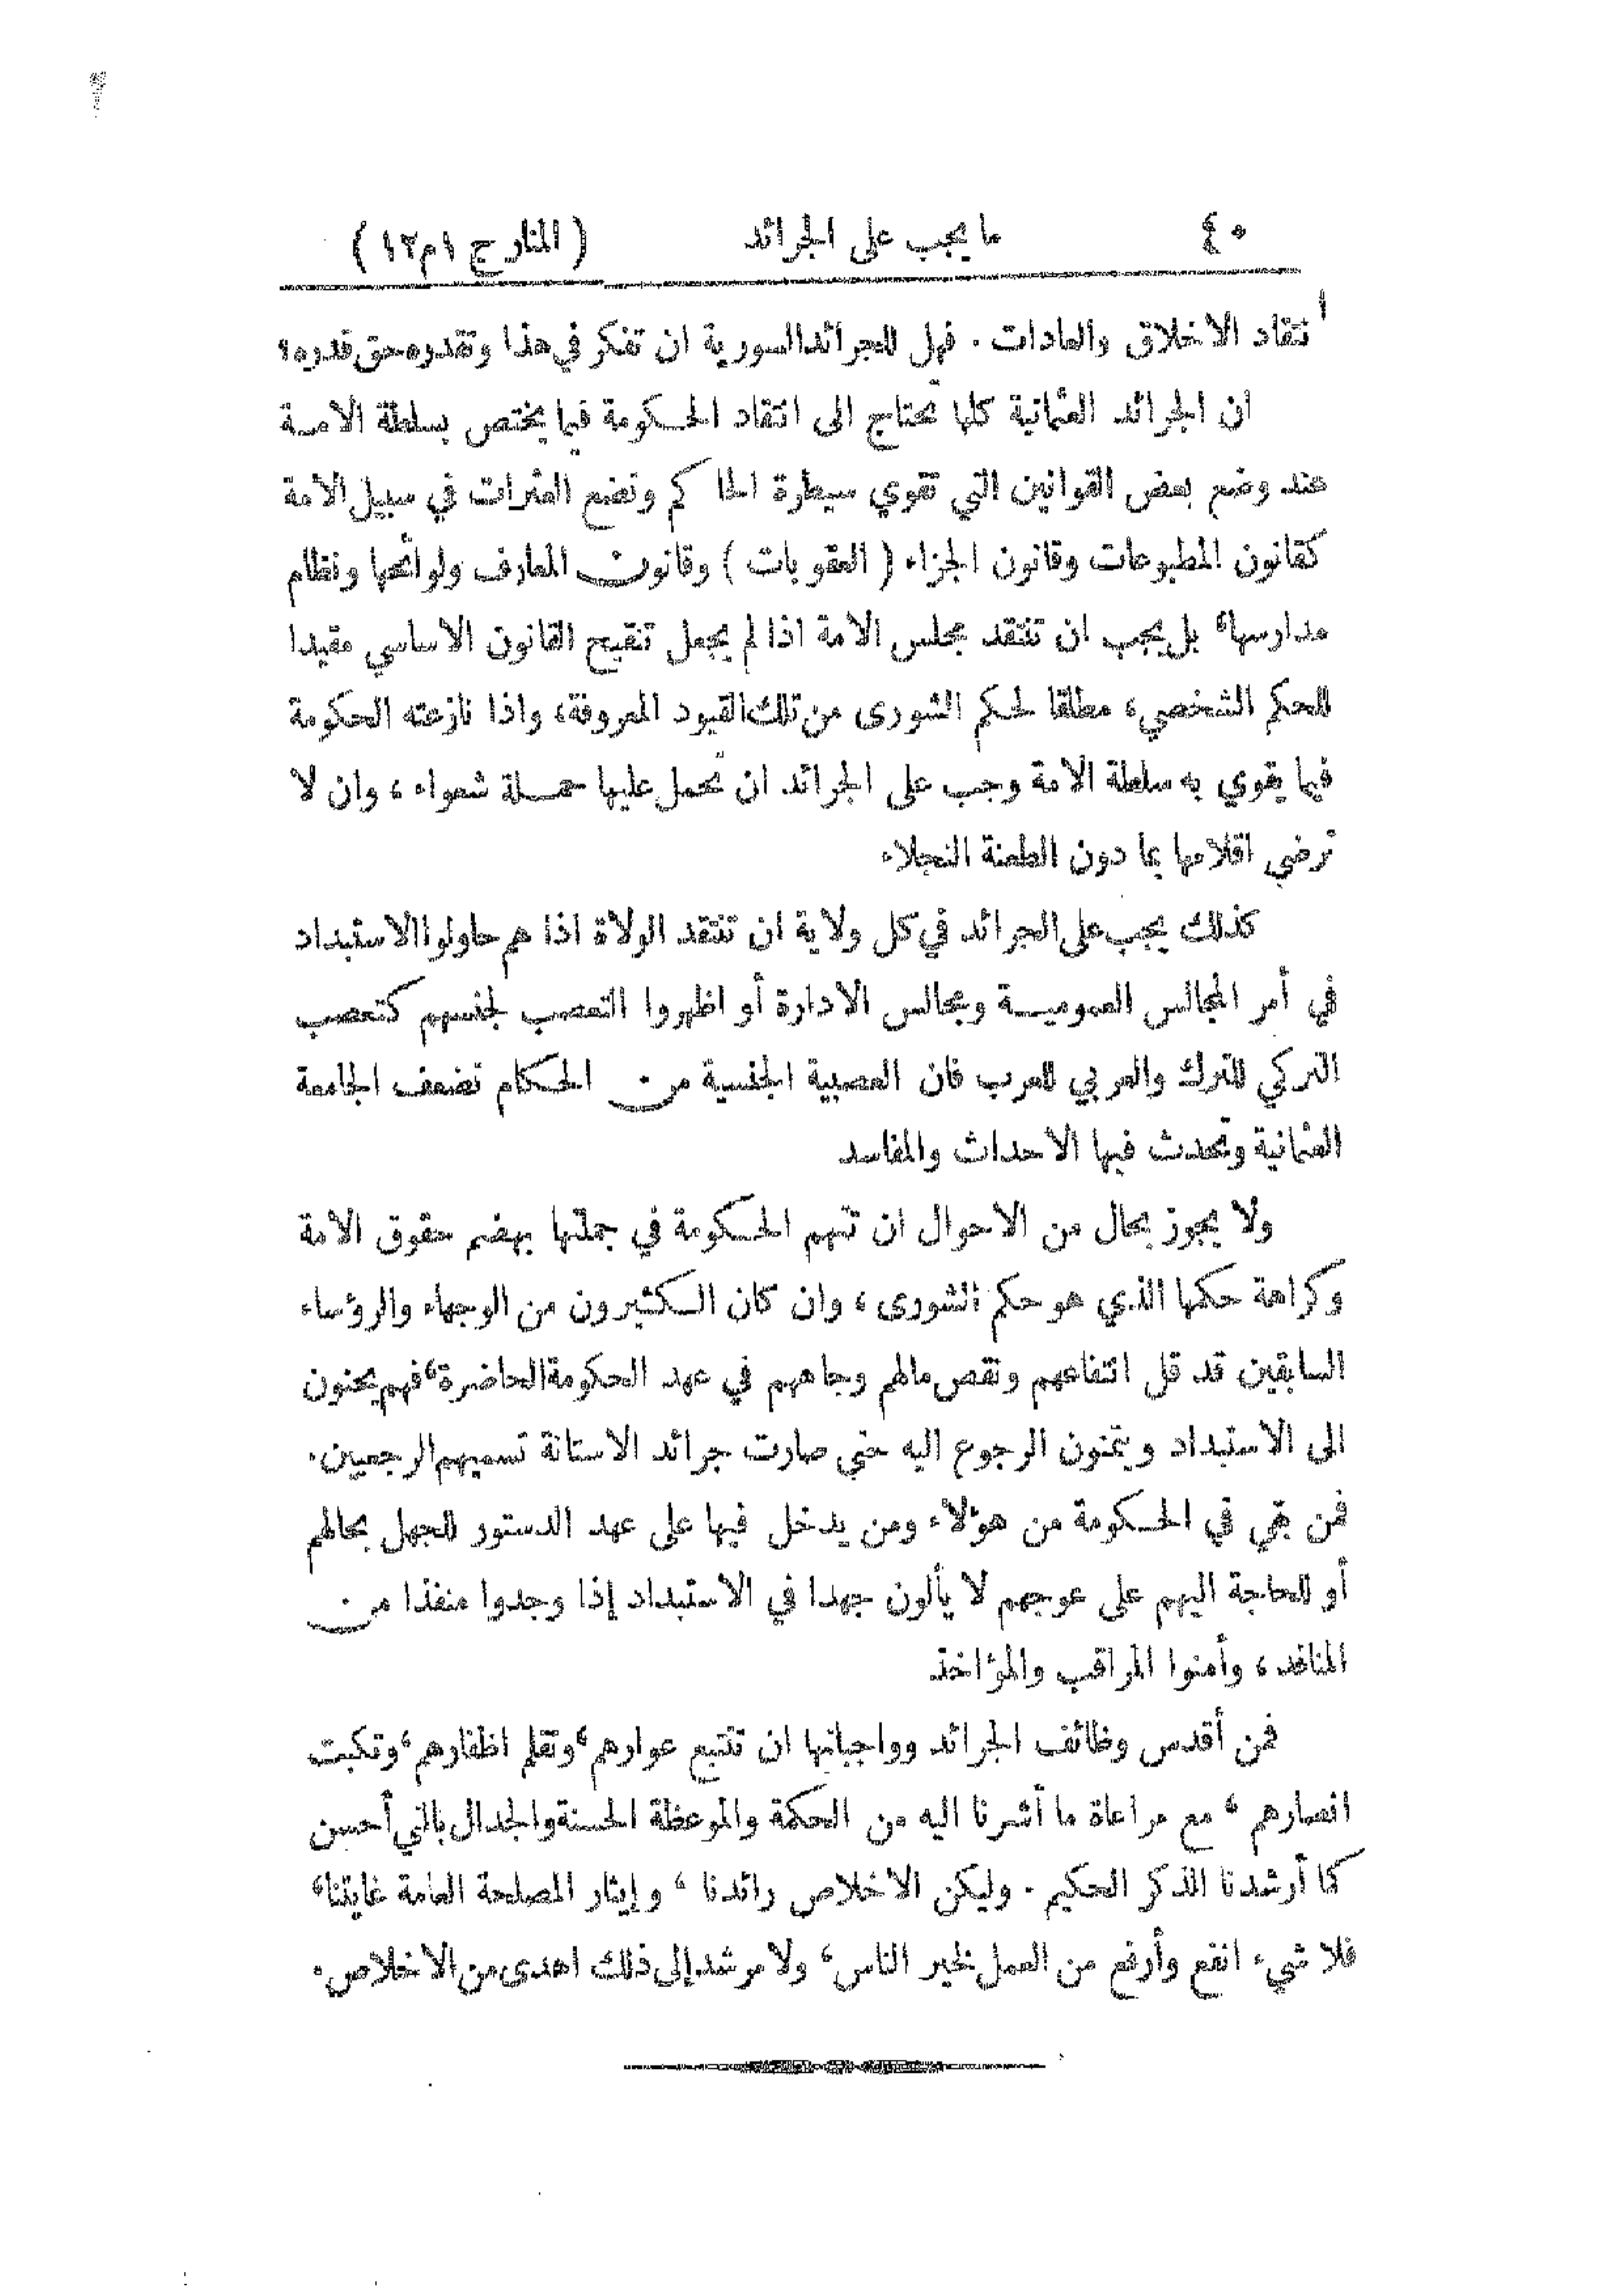 ٤٠ ما يجب على الجرائد ( المنار ج ١ م ١٢ )
انتقاد الاخلاق والعادات . فهل للجرائد السورية ان تفكر في هذا وتقدره حق قدره؟
ان الجرائد العثمانية كلها تحتاج الى انتقاد الحكومة فيما يختص بسلطة الامة
عند وضع بعض القوانين التي تقوي سيطرة الحاكم وتضع العثرات في سبيل الامة
كقانون المطبوعات وقانون الجزاء ( العقوبات ) وقانون المعارف ولوائحها ونظام
مدارسها، بل يجب ان تنتقد مجلس الامة اذا لم يجعل تنقيح القانون الاساسي مقيدا
للحكم الشخصي، مطلقا لحكم الشورى من تلك القيود المعروفة، واذا نازعته الحكومة
فيما يقوي به سلطة الامة وجب على الجرائد ان تحمل عليها حملة شعواء ، وان لا
ترضي اقلامها بما دون الطعنة النجلاء
كذلك يجب على الجرائد في كل ولاية ان تنتقد الولاة اذا هم حاولوا الاستبداد
في أمر المجالس العمومية ومجالس الادارة أو اظهروا التعصب لجنسهم كتعصب
التركي للترك والعربي للعرب فان العصبية الجنسية من الحكام تضعف الجامعة
العثمانية وتحدث فيها الاحداث والمفاسد
ولا يجوز بحال من الاحوال ان تتهم الحكومة في جملتها بهضم حقوق الامة
وكراهة حكمها الذي هو حكم الشورى ، وان كان الكثيرون من الوجهاء والرؤساء
السابقين قد قل انتفاعهم ونقص مالهم وجاههم في عهد الحكومة الحاضرة، فهم يحنون
الى الاستبداد ويتمنون الرجوع اليه حتى صارت جرائد الاستانة تسميهم الرجعيين.
فمن بقي في الحكومة من هؤلاء ومن يدخل فيها على عهد الدستور للجهل بحالهم
أو للحاجة اليهم على عوجهم لا يألون جهدا في الاستبداد إذا وجدوا منفذا من
المنافذ ، وأمنوا المراقب والمؤاخذ
فمن أقدس وظائف الجرائد وواجباتها ان تتتبع عوارهم، وتقلم اظفارهم، وتكبت
انصارهم ، مع مراعاة ما أشرنا اليه من الحكمة والموعظة الحسنة والجدال بالتي أحسن
كما أرشدنا الذكر الحكيم . وليكن الاخلاص رائدنا ، وإيثار المصلحة العامة غايتنا،
فلا شيء انفع وأرفع من العمل لخير الناس، ولا مرشد إلى ذلك اهدى من الاخلاص.